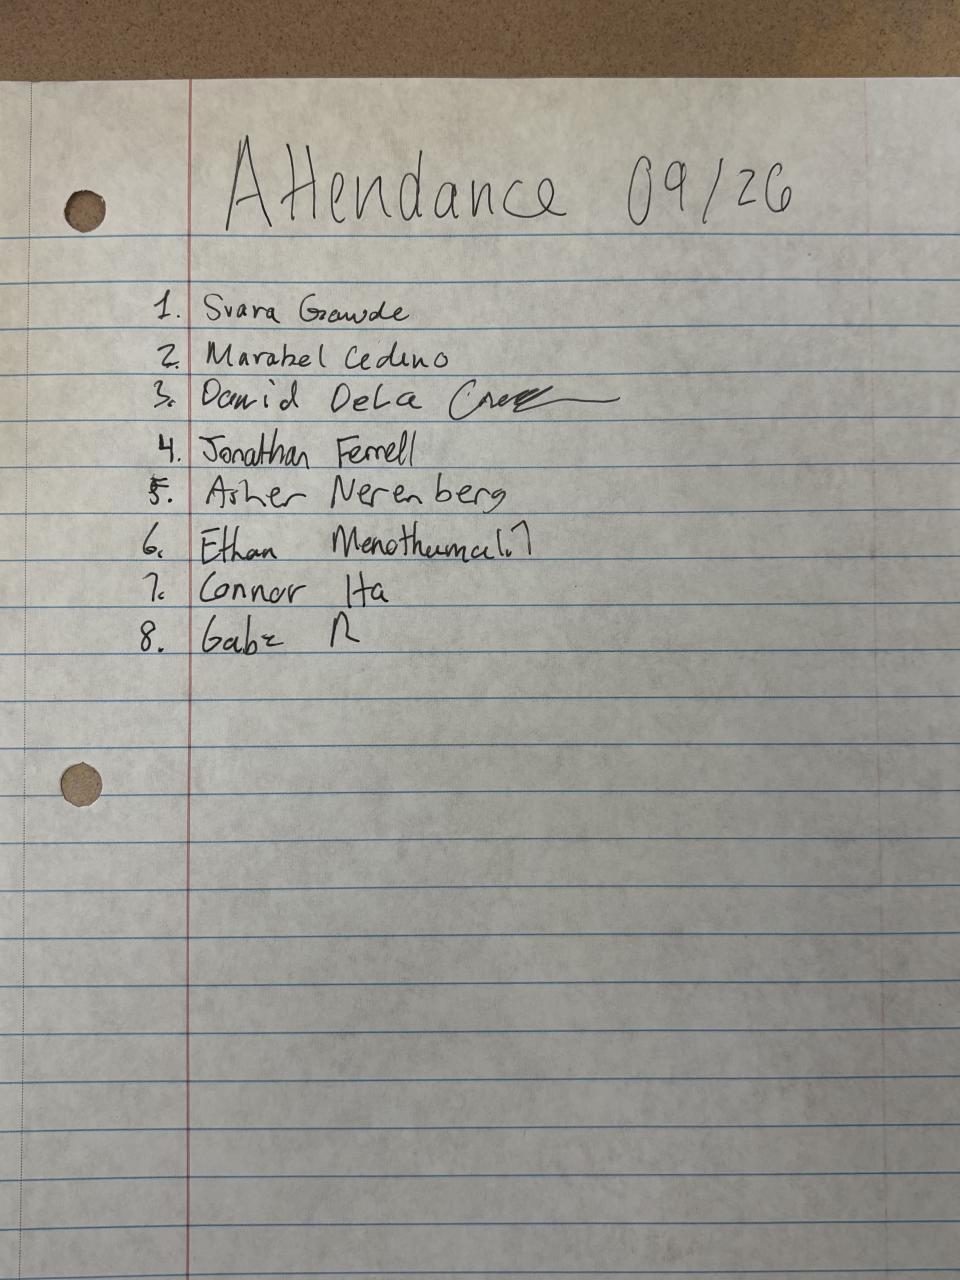 Attendance 09/26
1. Svara Gawde
2. Marabel Cedeno
3. David DeLa
4. Jonathan Ferrell
5. Asher Nerenberg
6. Ethan
7. Connor Ha
8. Gabe R